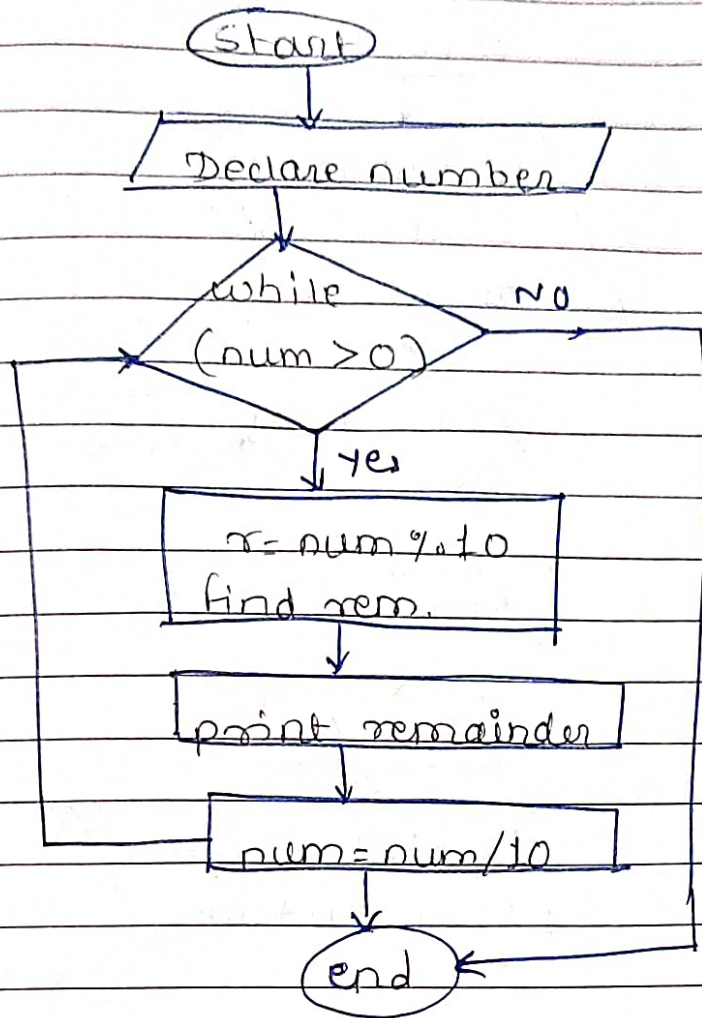 Start
Declare number
while
(num > 0)
NO
yes
r= num % 10
find rem.
print remainder
num = num/10
end